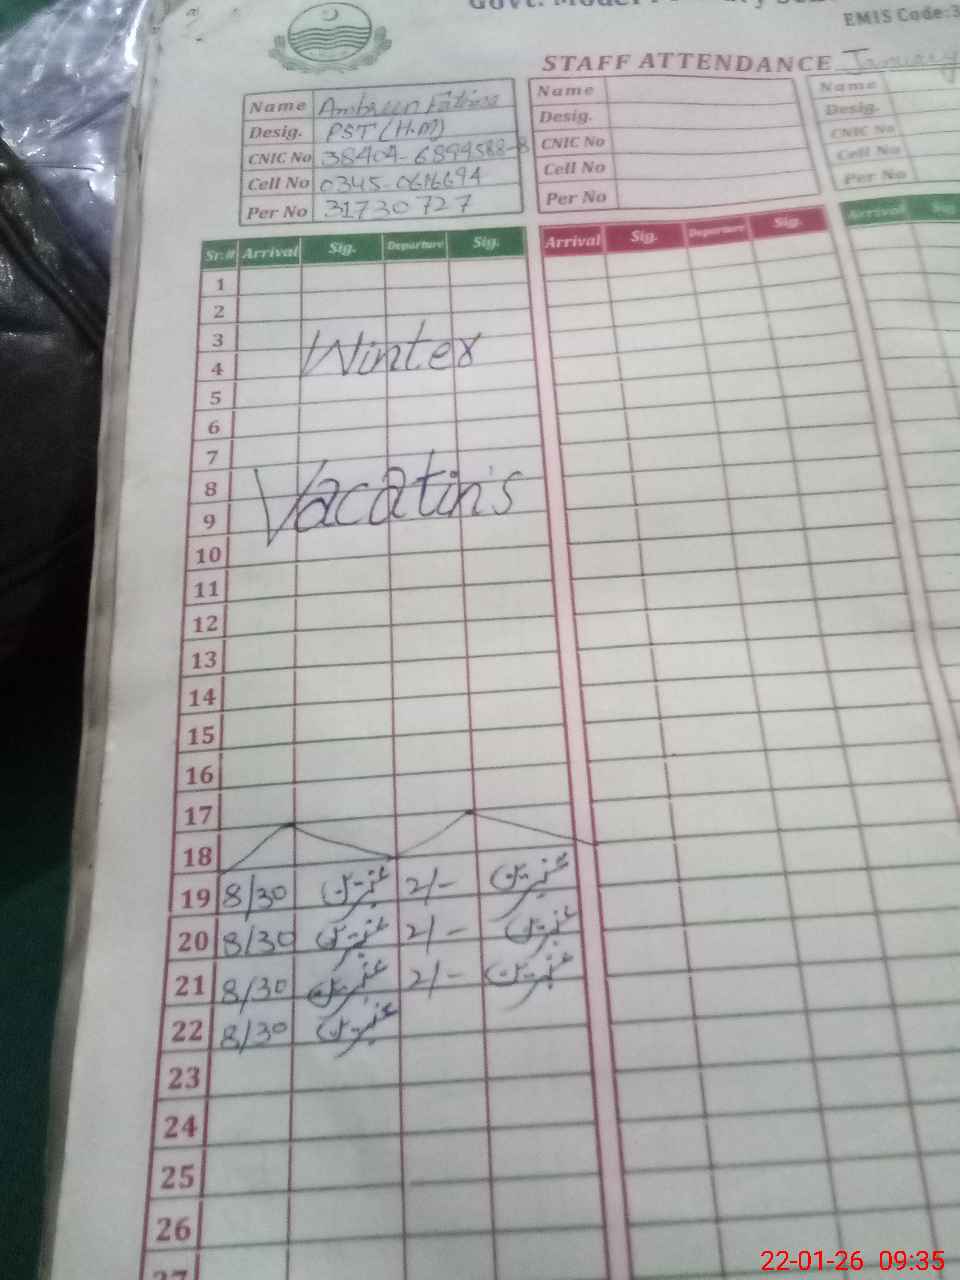 EMIS Code:3
STAFF ATTENDANCE January
Name Ambreen Fatima
Desig. PST (H.M)
CNIC No 38404-6894588-8
Cell No
Per No 31730727
Name
Desig.
CNIC No
Cell No
Per No
Name
Desig.
CNIC No
Cell No
Per No
Sr.# Arrival Sig. Departure Sig.
Arrival Sig. Departure Sig.
Arrival Sig
1
2
3
4
Winter
5
6
7
8
9
Vacatin's
10
11
12
13
14
15
16
17
18
19 8/30 2/-
20 8/30 2/-
21 8/30 2/-
22 8/30
23
24
25
26
27
22-01-26 09:35